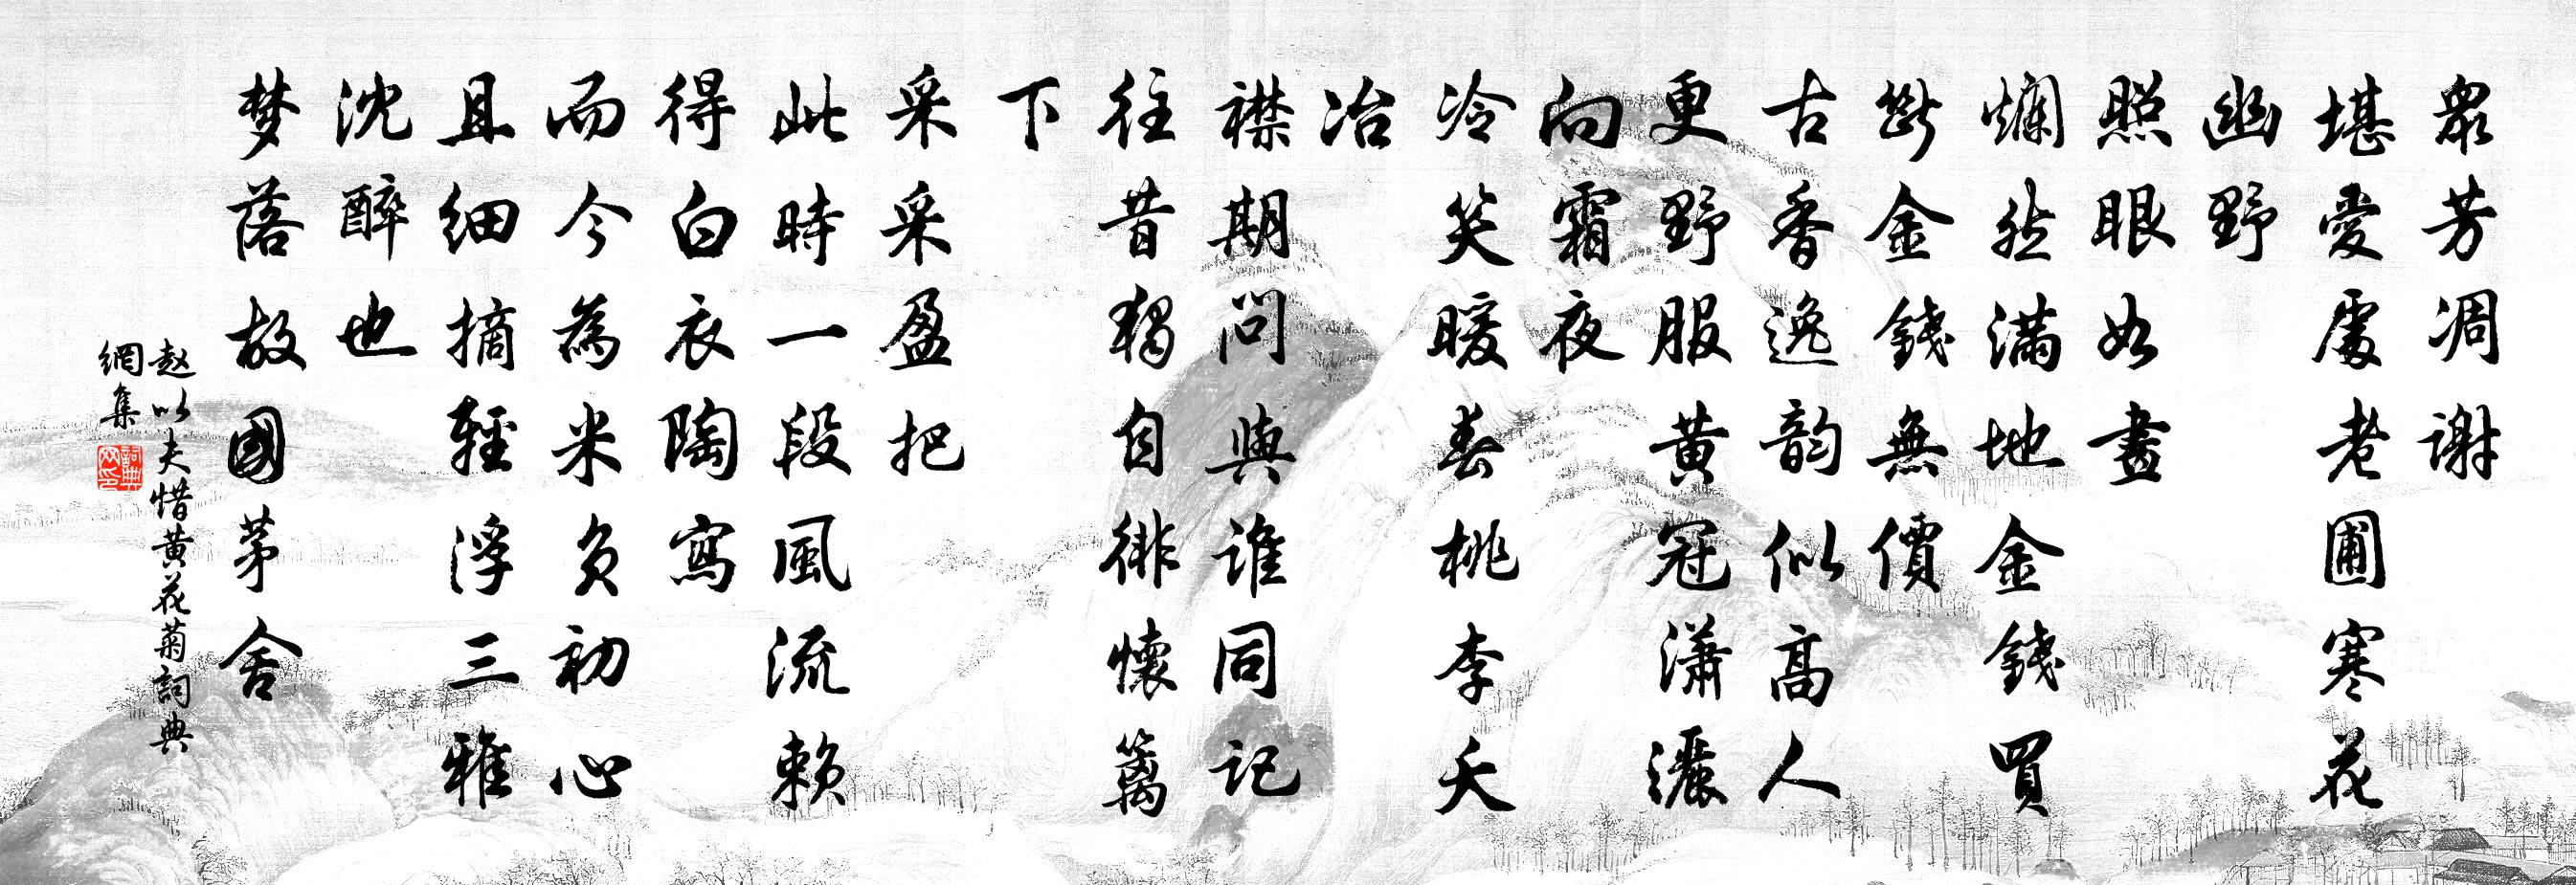 眾芳凋謝
堪愛處老圃寒花
幽野
照眼如畫
爛然滿地金錢買
斷金錢無價
古香逸韵似高人
更野服黃冠瀟灑
向霜夜
冷笑暖春桃李夭
冶
襟期問與誰同記
往昔獨自徘懷籬
下
采采盈把
此時一段風流賴
得白衣陶寫
而今為米負初心
且細摘輕浮三雅
沈醉也
梦落故國茅舍
赵以夫惜黄花菊詞典
網集
詞典